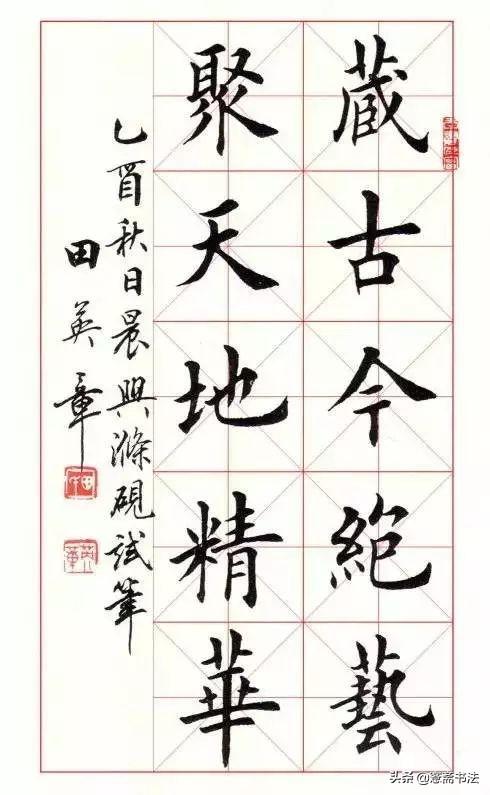 藏古今絕藝
聚天地精華
乙酉秋日晨興滌硯試筆
田英章
头条@憲斋书法